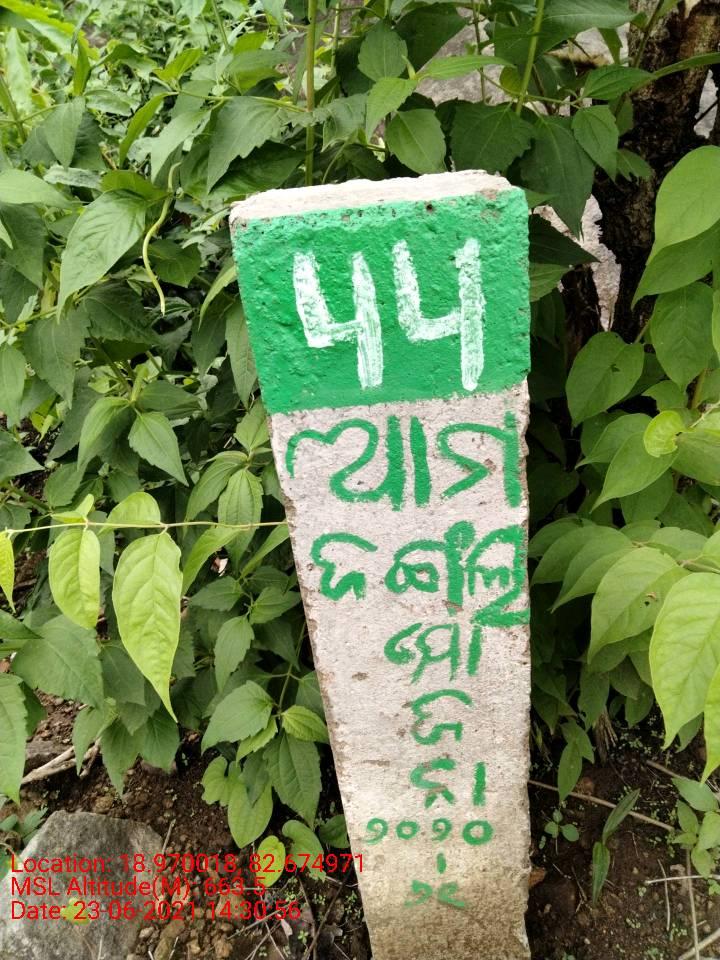 ୫୫
ଆମ
ଜଙ୍ଗଲ
ଯୋ
ଜ
ନା
୨୦୨୦
-
୨୧
Location: 18.970018, 82.674971
MSL Altitude(M): 663.5
Date: 23-06-2021 14:30:56